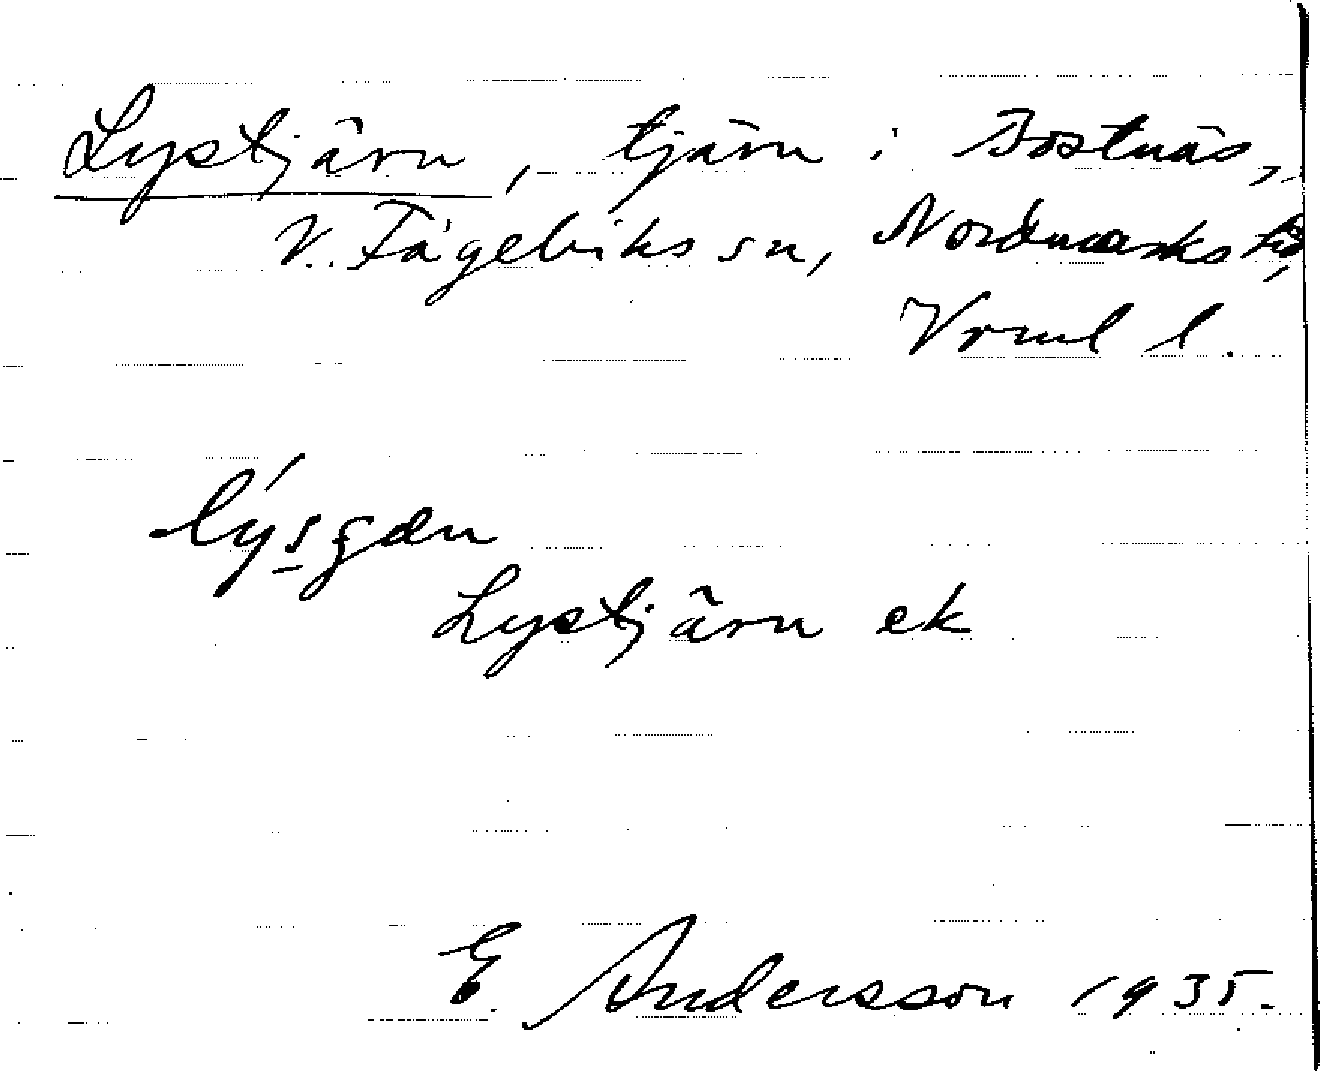 Lystjärn, tjärn i Bostnäs,
V. Fågelviks sn, Nordmarks hd,
Vrml l.
Lystjärn ek
E Andersson 1935.